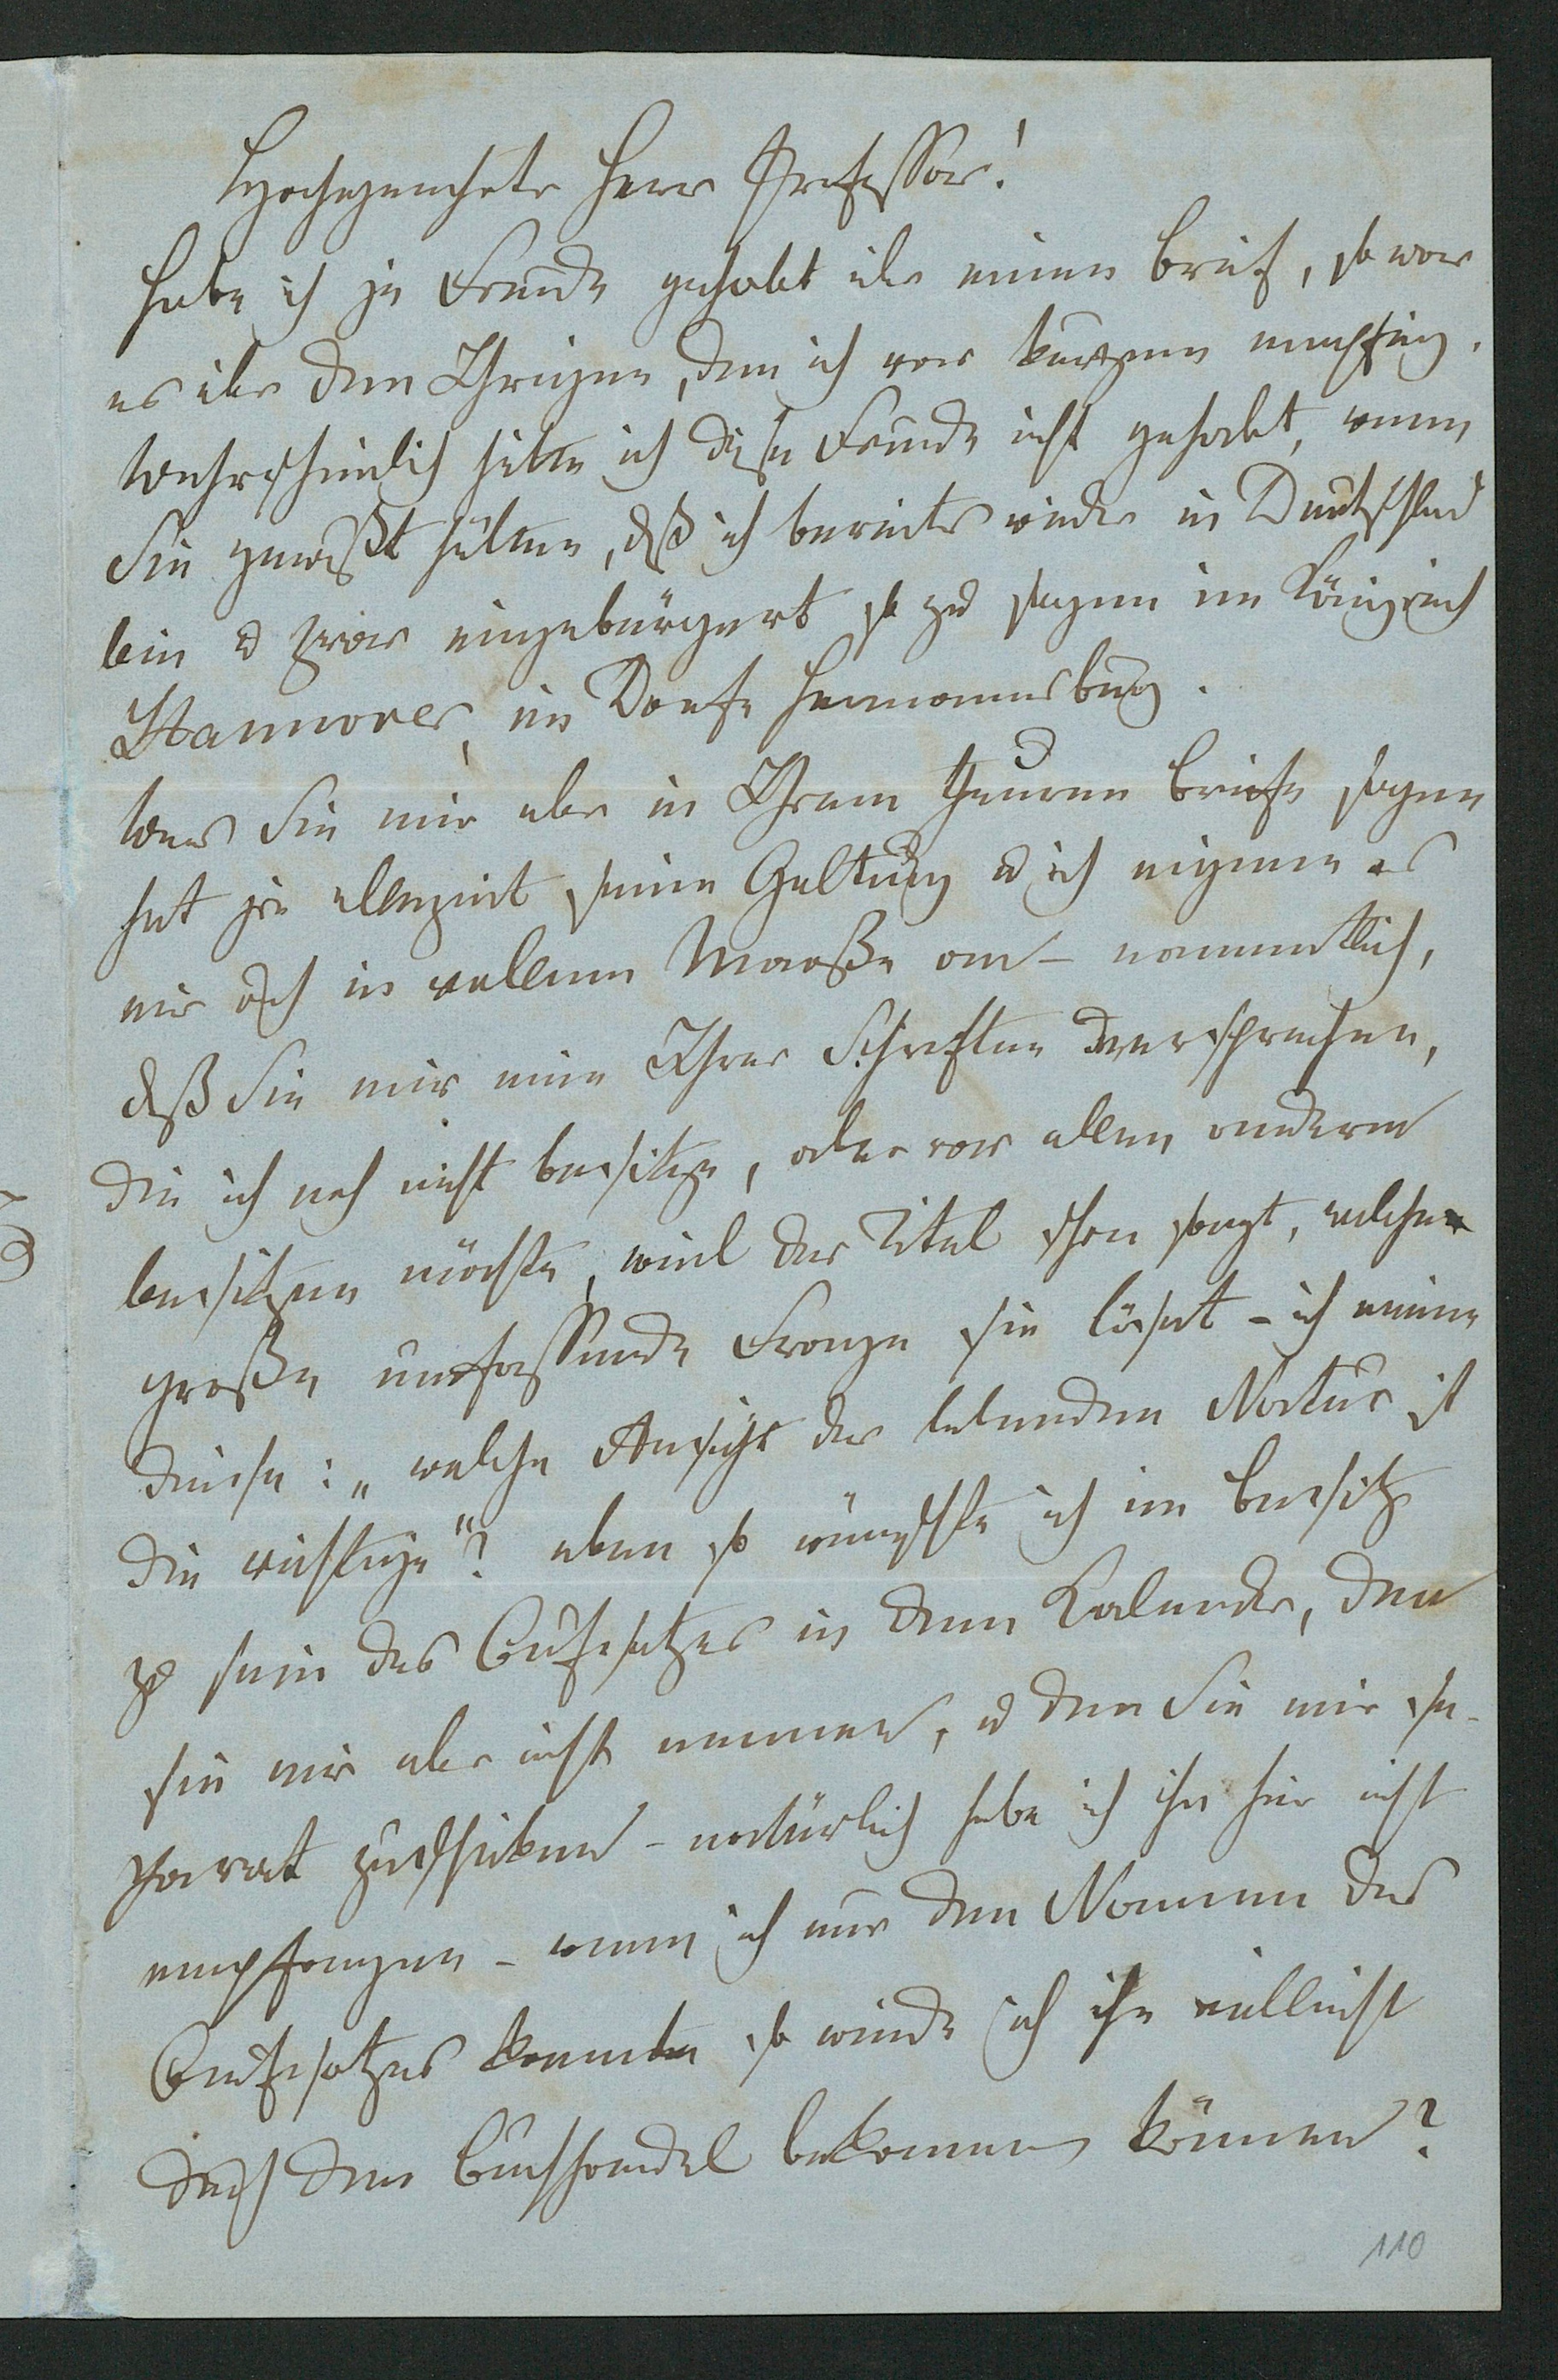 Hochgeachteter Herr Professor!
Habe ich je Freude gehabt über einen Brief, so war
es über den Ihrigen, den ich vor kurzem empfing.
Wahrscheinlich hätte ich diese Freude nicht gehabt, wenn
Sie gewußt hätten, daß ich bereits wieder in Deutschland
bin u zwar eingebürgert so zu sagen im Königreich
Hannover, im Dorfe Hermannsburg.
Was Sie mir aber in Ihrem theuren Briefe sagen
hat ja allezeit seine Geltung u ich eigene es
mir auch in vollem Maaße an – namentlich,
daß Sie mir eine Ihrer Schriften versprechen,
die ich noch nicht besitze, aber vor allen anderen
besitzen möchte, weil der Titel schon sagt, welche
große umfassende Frage sie löset – ich meine
diese: „welche Ansicht der lebenden Natur ist
die richtige"? eben so wünschte ich im Besitz
zu sein des Aufsatzes in dem Kalender, den
sie mir aber nicht nennen, u den Sie mir se-
parat zuschicken – natürlich habe ich ihn hier nicht
empfangen – wenn ich nur den Namen des
Aufsatzes kennte so würde ich ihn vielleicht
durch den Buchhandel bekommen können?
110